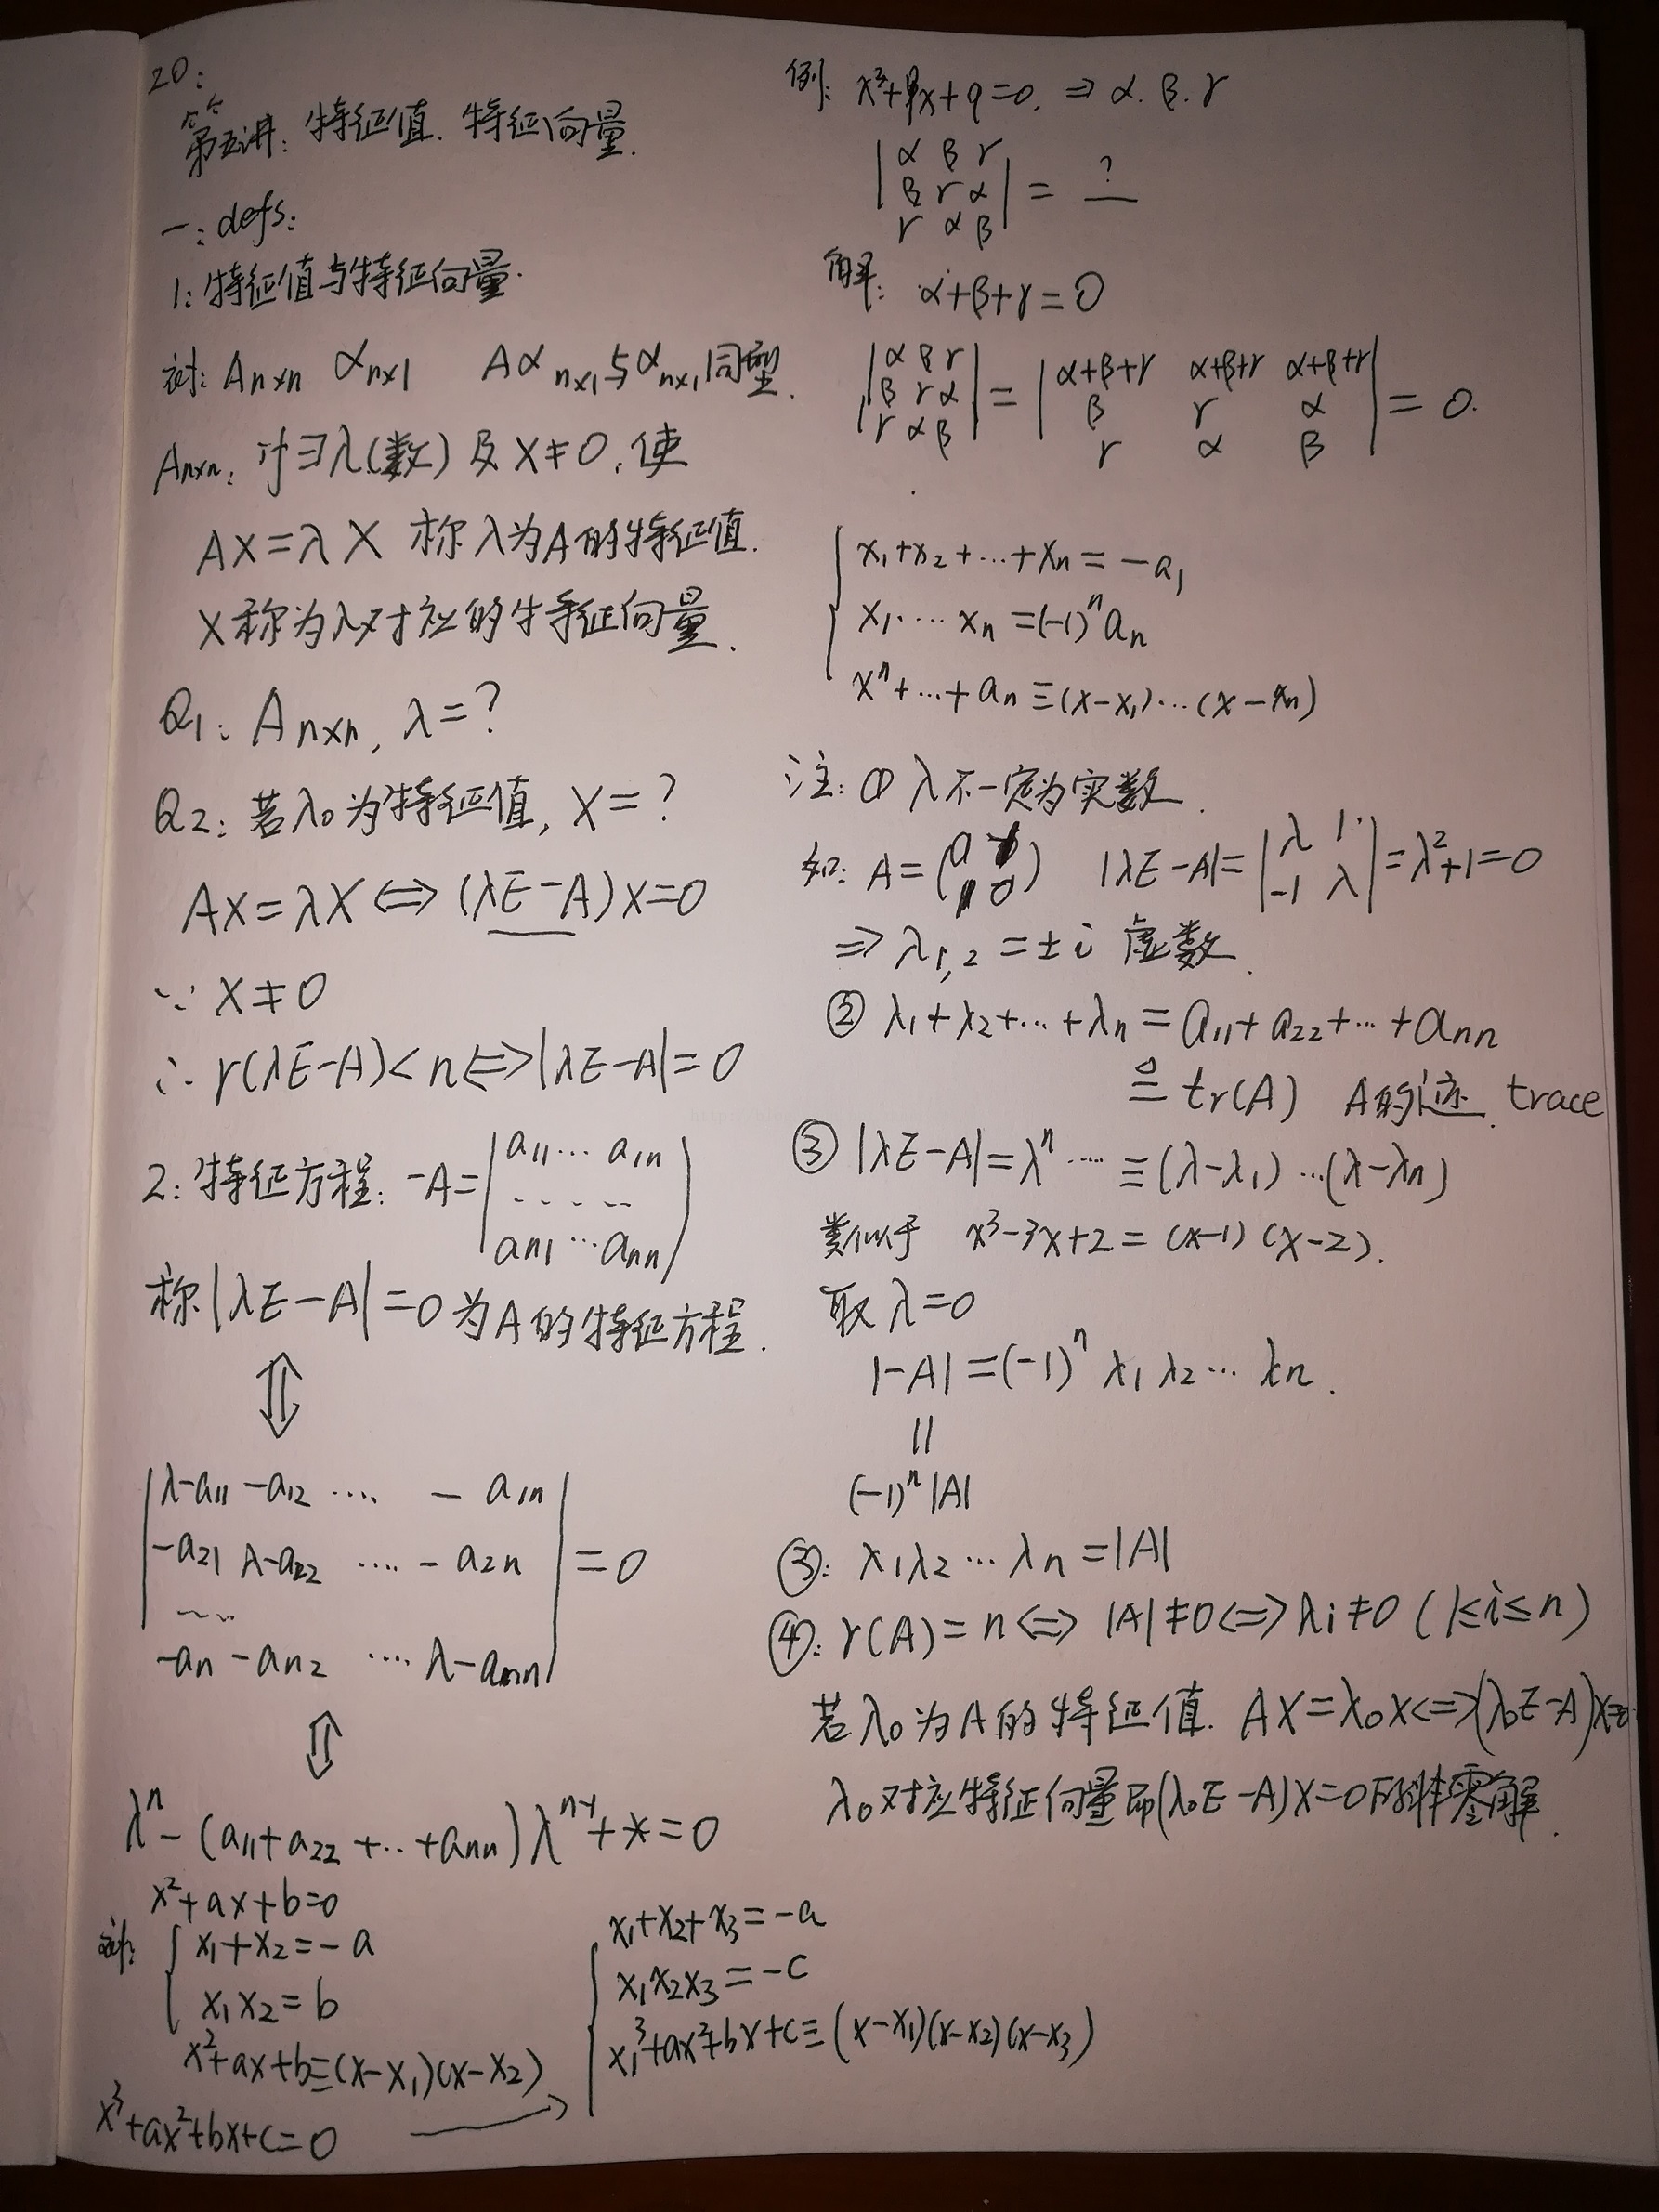 20:
第五讲: 特征值. 特征向量.
一: defs:
1: 特征值与特征向量.
讨: An×n αn×1 Aαn×1与αn×1同型.
An×n: 讨∃λ(数)及X≠0, 使
AX=λX 称λ为A的特征值.
X称为λ对应的特征向量.
Q1: An×n, λ=?
Q2: 若λ0为特征值, X=?
AX=λX⟺(λE-A)X=0
∵ X≠0
∴ r(λE-A)<n⟺|λE-A|=0
2: 特征方程: -A=(a11 ... a1n
.....
an1 ... ann)
称|λE-A|=0为A的特征方程.
⇕
|λ-a11 -a12 .... - a1n|
|-a21 λ-a22 .... - a2n| =0
....
-an -an2 .... λ-ann|
⇕
λ^n-(a11+a22+..+ann)λ^(n-1)+*=0
x²+ax+b=0
x1+x2=-a
x1x2=b
x²+ax+b≡(x-x1)(x-x2)
x³+ax²+bx+c=0 →
x1+x2+x3=-a
x1x2x3=-c
x1³+ax²+bx+c≡(x-x1)(x-x2)(x-x3)
例: x³+px+q=0. ⇒ α. β. γ
|α β γ|
|β γ α| = ?
γ α β
解: α+β+γ=0
|α β γ| |α+β+γ α+β+γ α+β+γ|
|β γ α| = | β γ α | = 0.
γ α β γ α β
x1+x2+...+xn=-a1
x1....xn=(-1)^n an
x^n+...+an≡(x-x1)...(x-xn)
注: ① λ不一定为实数.
如: A=( 0 ) |λE-A|=|λ 1|=λ²+1=0
( 0) |-1 λ|
⇒ λ1,2=±i 虚数.
② λ1+λ2+...+λn=a11+a22+...+ann
≜ tr(A) A的迹. trace
③ |λE-A|=λ^n ....≡(λ-λ1)...(λ-λn)
类似于 x³-3x+2=(x-1)(x-2).
取λ=0
|-A|=(-1)^n λ1λ2...λn.
||
(-1)^n|A|
③: λ1λ2...λn=|A|
④: r(A)=n⟺|A|≠0⟺λi≠0 (1≤i≤n)
若λ0为A的特征值. AX=λ0X⟺(λ0E-A)X=0
λ0对应特征向量即(λ0E-A)X=0的非零解.